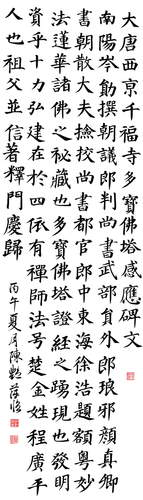 大唐西京千福寺多寶佛塔感應碑文
南陽岑勛撰朝議郎判尚書武部員外郎琅邪顏真卿
書朝散大夫撿挍尚書都官郎中東海徐浩題額粵妙
法蓮華諸佛之秘藏也多寶佛塔證經之踴現也發明
資乎十力弘建在於四依有禪師法号楚金姓程廣平
人也祖父並信著釋門慶歸
丙午夏月陳